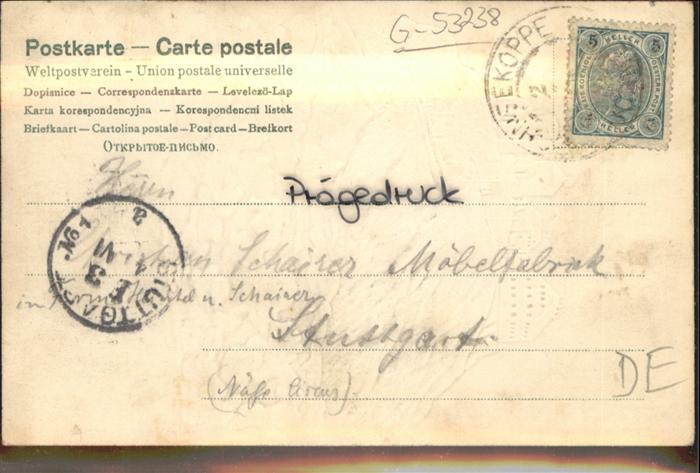 G-53238
Postkarte — Carte postale
Weltpostverein - Union postale universelle
Dopisnice — Correspondenzkarte — Levelező-Lap
Karta korespondencyjna — Korespondencni listek
Briefkaart — Cartolina postale — Post card — Brefkort
ОТКРЫТОЕ-ПИСЬМО.
5 HELLER 5
HELLER
Prägedruck
Schairer Möbelfabrik
in u. Schairer
Stuttgart
DE
STUTTGART
№ 1